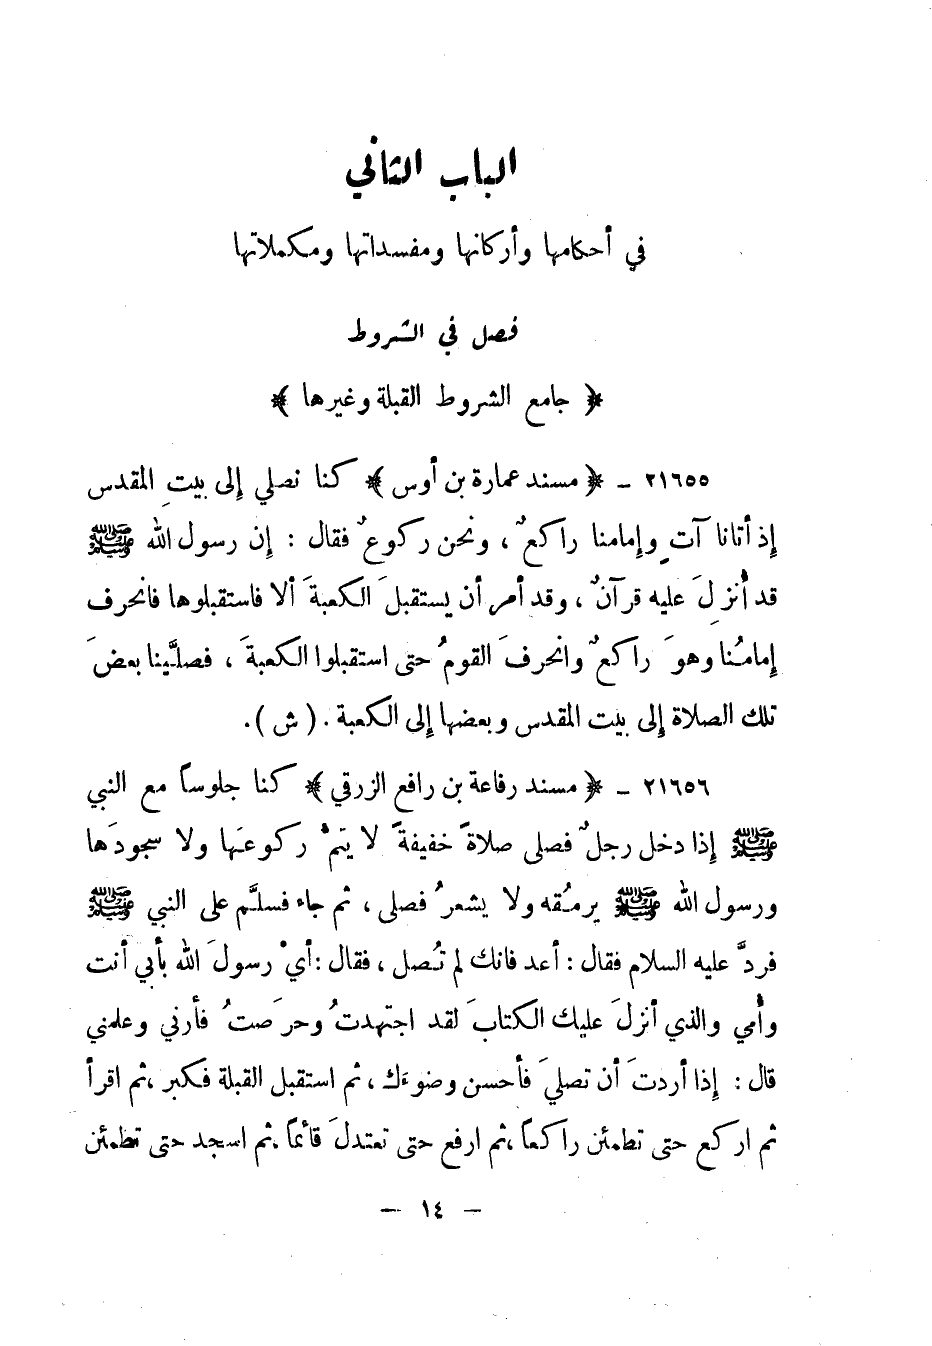 الباب الثاني
في أحكامها وأركانها ومفسداتها ومكملاتها
فصل في الشروط
﴿ جامع الشروط القبلة وغيرها ﴾
٢١٦٥٥ ـ ﴿ مسند عمارة بن أوس ﴾ كنا نصلي إلى بيتِ المقدس
إذ أتانا آتٍ وإمامنا راكعٌ ، ونحن ركوعٌ فقال : إن رسول الله ﷺ
قد أُنزلَ عليه قرآنٌ ، وقد أمر أن يستقبلَ الكعبةَ ألا فاستقبلوها فانحرف
إمامُنا وهوَ راكعٌ وانحرفَ القومُ حتى استقبلوا الكعبةَ ، فصلَّينا بعضَ
تلك الصلاة إلى بيت المقدس وبعضها إلى الكعبة . ( ش ) .
٢١٦٥٦ ـ ﴿ مسند رفاعة بن رافع الزرقي ﴾ كنا جلوساً مع النبي
ﷺ إذا دخل رجلٌ فصلى صلاةً خفيفةً لا يتمُّ ركوعَها ولا سجودَها
ورسول الله ﷺ يرمُقه ولا يشعرُ فصلى ، ثم جاء فسلَّم على النبي ﷺ
فردَّ عليه السلام فقال : أعد فانك لم تُصل ، فقال : أيْ رسولَ الله بأبي أنت
وأُمي والذي أنزلَ عليك الكتابَ لقد اجتهدتُ وحرَصتُ فأرني وعلمني
قال : إذا أردتَ أن تصليَ فأحسن وضوءَك ، ثم استقبل القبلة فكبر ، ثم اقرأ
ثم اركع حتى تطمئن راكعاً ، ثم ارفع حتى تعتدلَ قائماً ، ثم اسجد حتى تطمئن
— ١٤ —